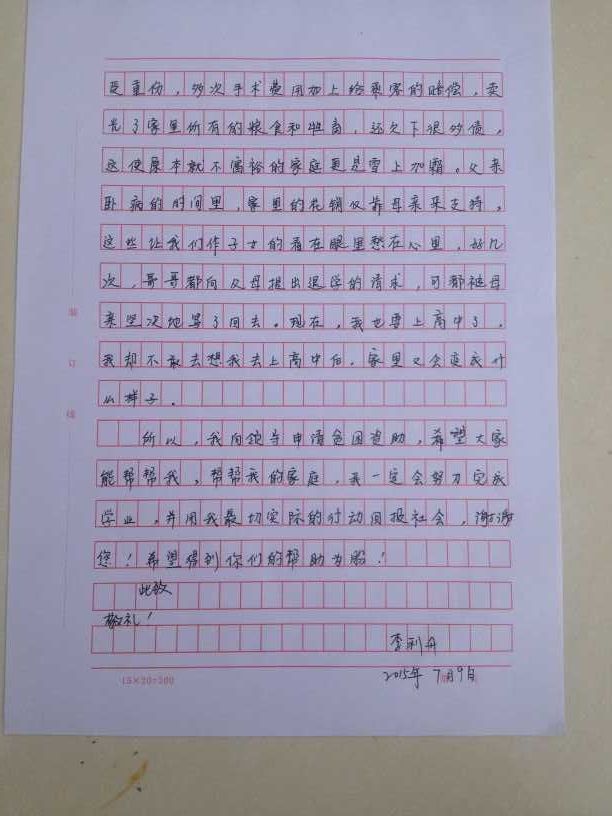 受重伤，多次手术费用加上给乘客的赔偿，卖
光了家里所有的粮食和牲畜，还欠下很多债，
这使原本就不富裕的家庭更是雪上加霜。父亲
卧病的时间里，家里的花销仅靠母亲来支持，
这些让我们作子女的看在眼里愁在心里，好几
次，哥哥都向父母提出退学的请求，可都被母
亲坚决地骂了回去。现在，我也要上高中了，
我却不敢去想我去上高中后，家里又会变成什
么样子。
所以，我向领导申请贫困资助，希望大家
能帮帮我，帮帮我的家庭，我一定会努力完成
学业，并用我最切实际的行动回报社会，谢谢
您！希望得到你们的帮助为盼！
此致
敬礼！
李利丹
2015年 7月9日
15×20=300
装
订
线